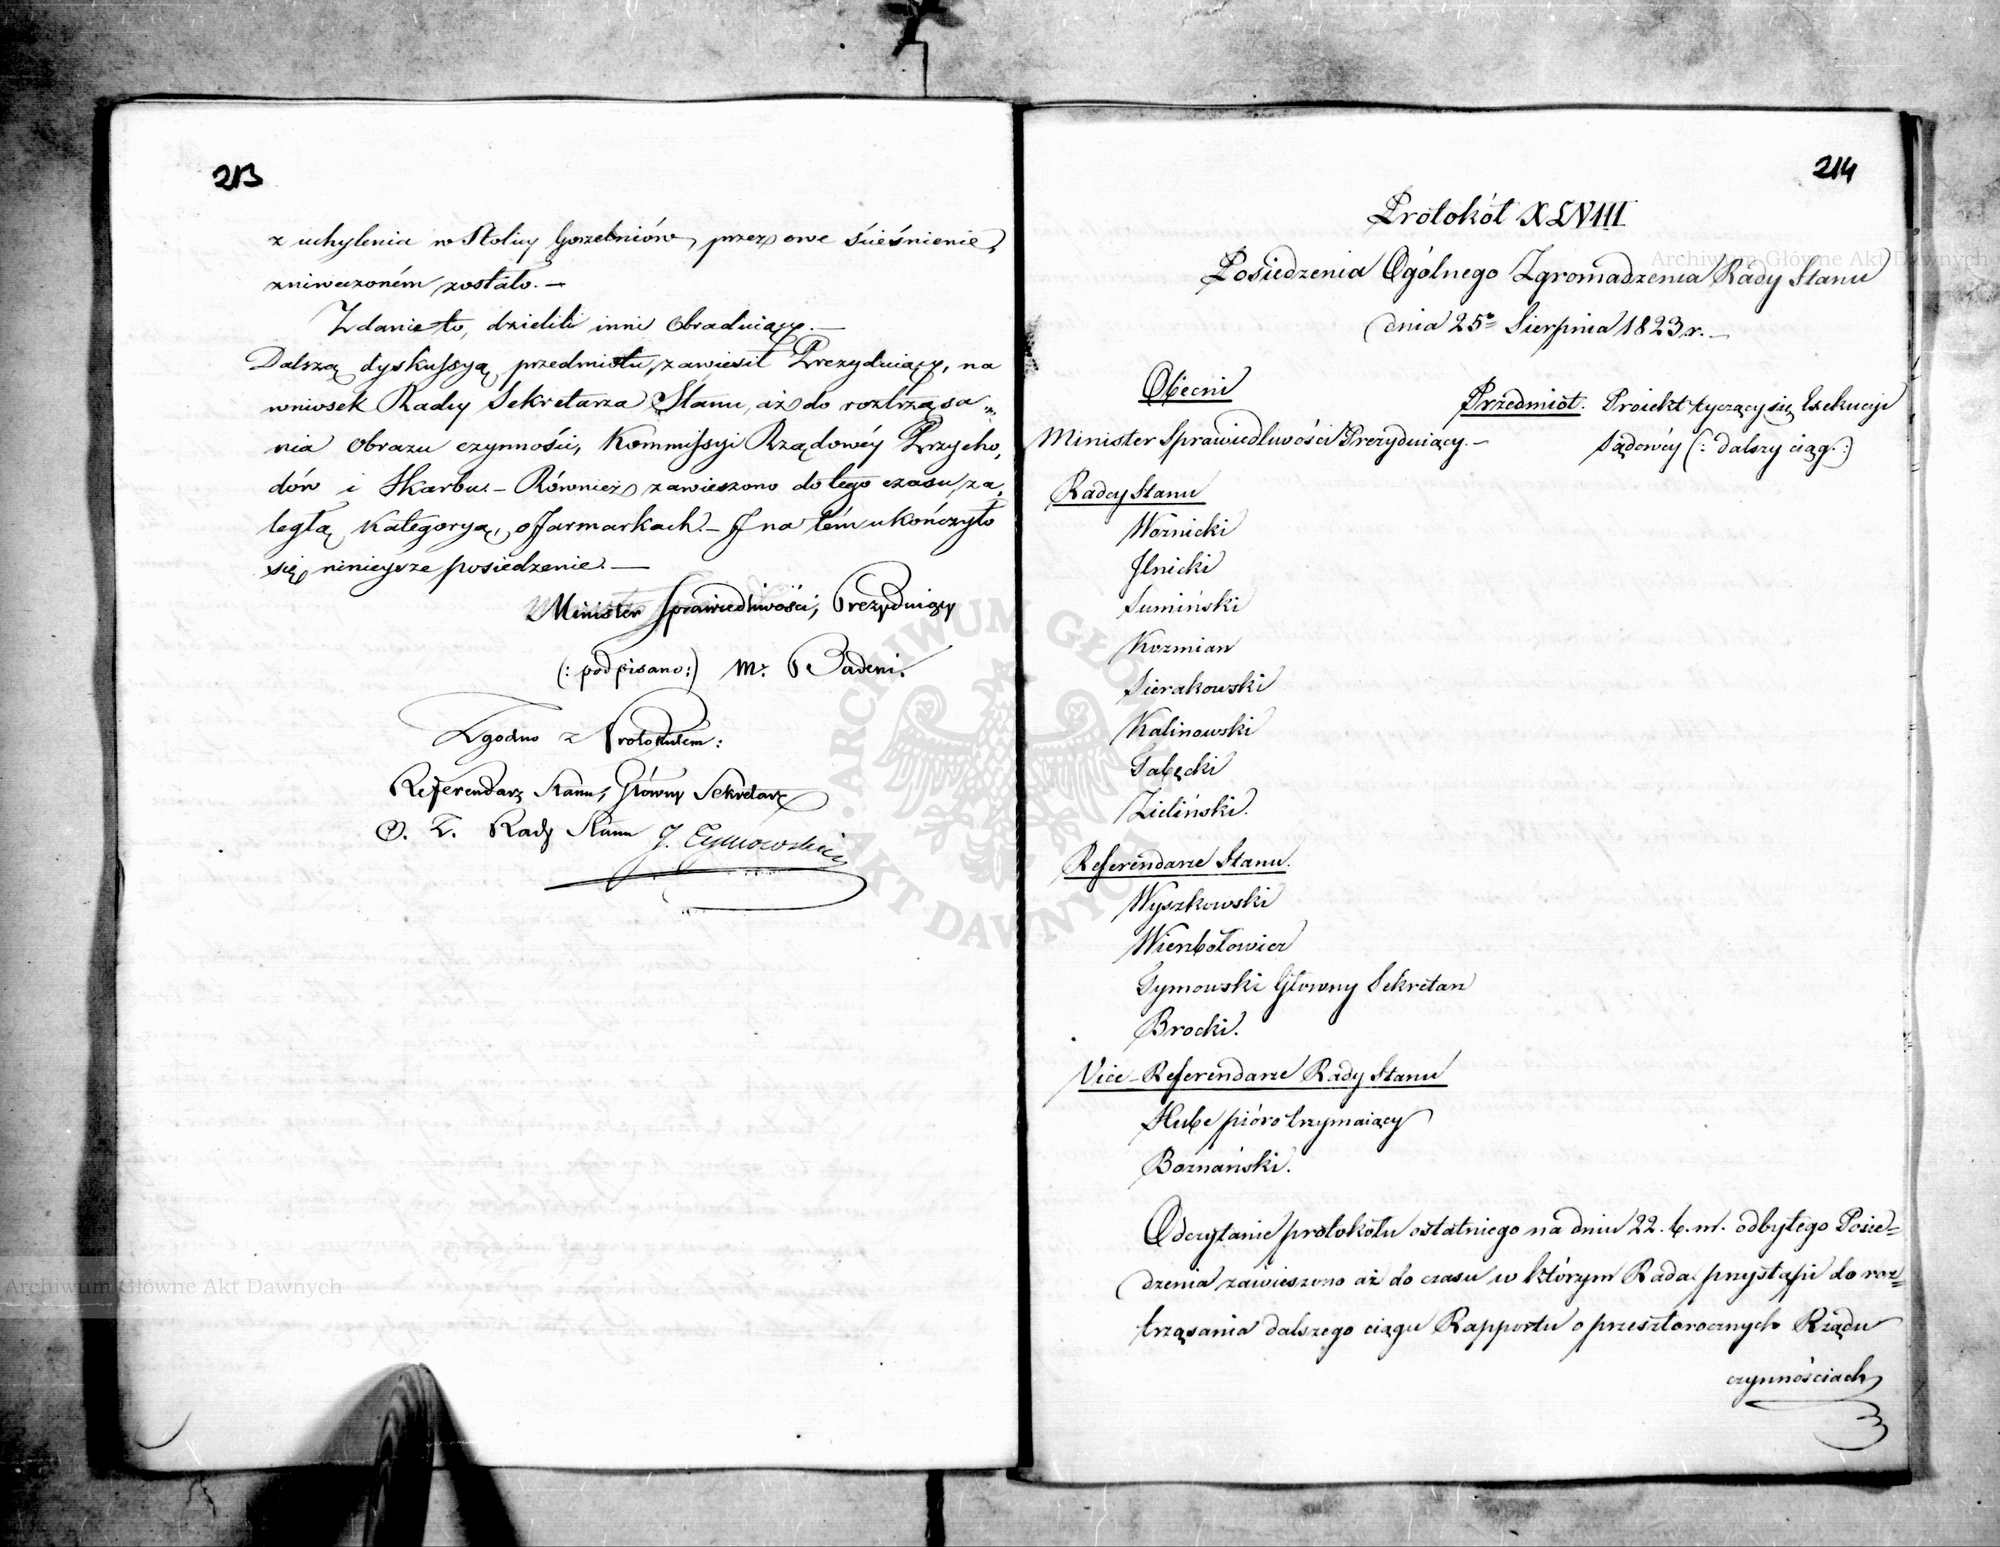 213
z uchylenia w Stolicy Gorzelniów, przez owe ścieśnienie,
zniweczoném zostało. —
Zdanie to, dzielili inni Obradujący. —
Dalszą dyskussyą przedmiotu, zawiesił Prezydujący, na
wniosek Radcy Sekretarza Stanu, aż do roztrząsa„
nia Obrazu czynności, Kommissyi Rządowéy Przycho„
dów i Skarbu. – Również zawieszono do tego czasu, za„
ległą Kategoryą, o Jarmarkach. – I na tém ukończyło
się ninieysze posiedzenie. —
Minister Sprawiedliwości, Prezydujący
(: podpisano:) M. Badeni.
Zgodno z Protokułem:
Referendarz Stanu, Główny Sekretarz
O. Z. Rady Stanu J. Tymowski
214
Protokół XLVIII
Posiedzenia Ogólnego Zgromadzenia Rady Stanu
dnia 25º Sierpnia 1823 r. —
Obecni
Przedmiot. Proiekt tyczący się Exekucyi
Minister Sprawiedliwości Prezydujący. –
Sądowéy (: dalszy ciąg. :)
Radcy Stanu
Woźnicki
Ilnicki
Sumiński
Kozmian
Sierakowski
Kalinowski
Gałęcki
Zieliński.
Referendarze Stanu.
Wyszkowski
Wierzbołowicz
Tymowski Główny Sekretarz
Brocki.
Vice-Referendarze Rady Stanu
Hube pióro trzymaiący
Boznański.
Odczytanie protokółu ostatniego na dniu 22. b. m. odbytego Posie=
dzenia zawieszono aż do czasu w którym Rada przystąpi do roz=
trząsania dalszego ciągu Rapportu o przeszłorocznych Rządu
czynnościach
Archiwum Główne Akt Dawnych
Archiwum Główne Akt Dawnych
ARCHIWUM GŁÓWNE · AKT DAWNYCH